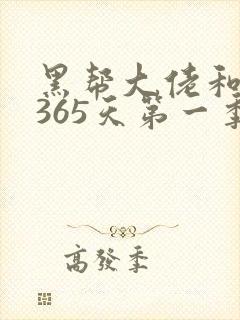 黑帮大佬和
365天第一季
高發季